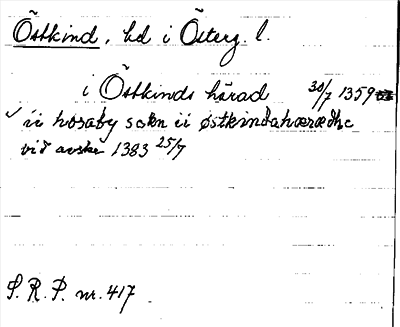 Östkind, hd i Österg. l.
i Östkinds härad 30/7 1359
✓ ii husaby sokn ii østkindahærædhe
vid avskr 1383 25/7
S. R. P. nr. 417